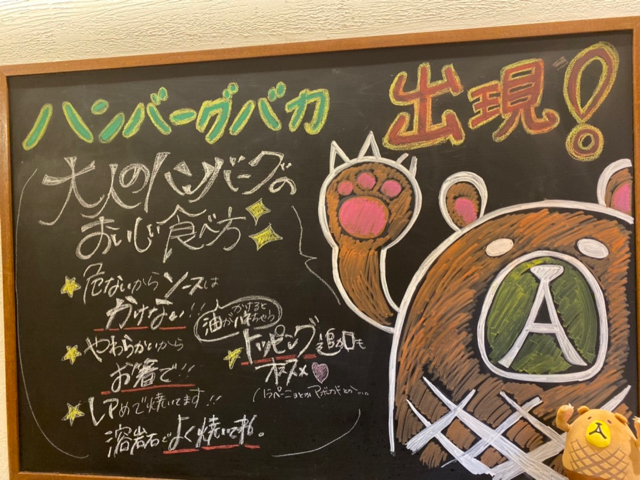 ハンバーグバカ 出現!
大人のハンバーグの
おいしい食べ方
危ないからソースは
かけない!!
かけると
油がハネちゃう
やわらかいから
お箸で!!
レアめで焼いてます!!
溶岩石でよく焼いてネ。
トッピング追加も
オススメ
A
A